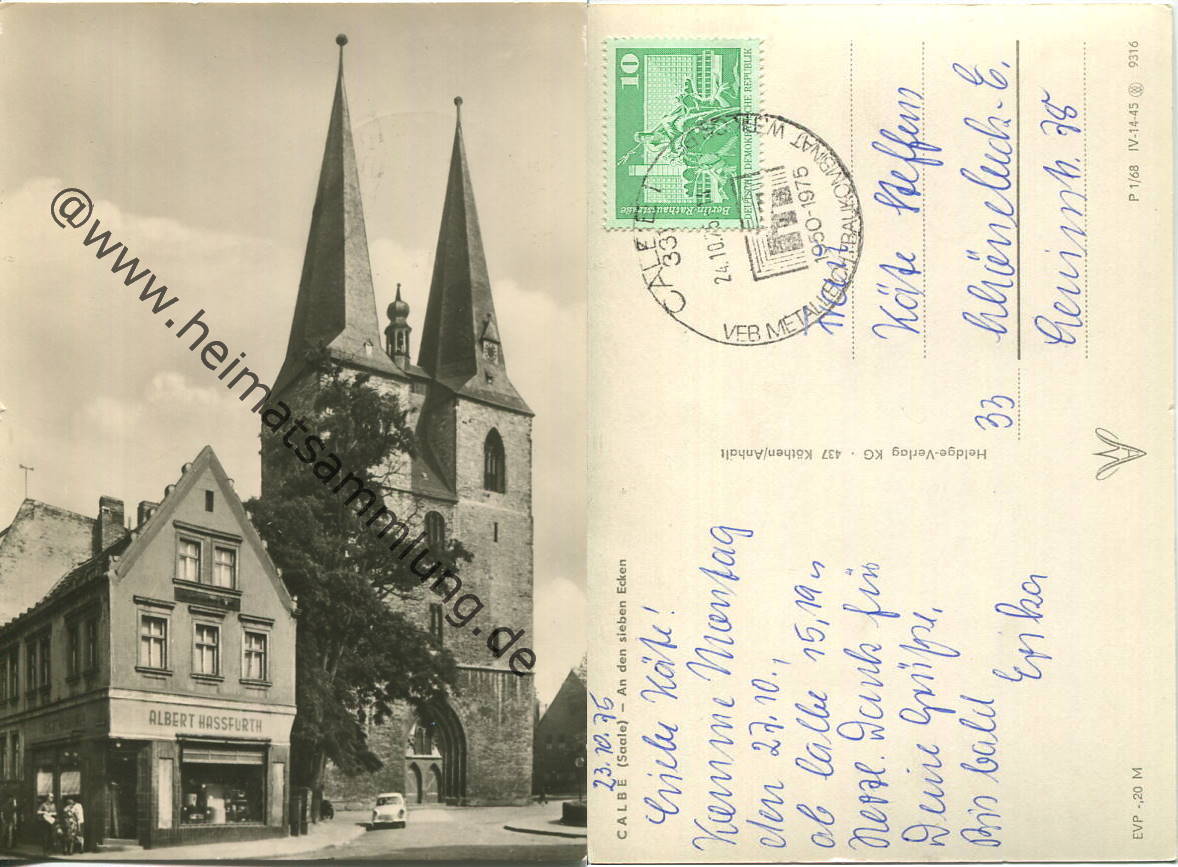 ALBERT HASSFURTH
@www.heimatsammlung.de
23.10.75
CALBE (Saale) – An den sieben Ecken
Liebe Käte!
Komme Montag
den 27.10.,
ab Calbe 15,19
Herzl. Dank für
Deine Grüße.
Bis bald
Erika
EVP -,20 M
Heldge-Verlag KG · 437 Köthen/Anhalt
10
Berlin-Rathausstraße
DEUTSCHE DEMOKRATISCHE REPUBLIK
CALBE
24.10.75
1950-1975
VEB METALLEICHTBAUKOMBINAT
Käte Steffen
33
P 1/68 IV-14-45 9316